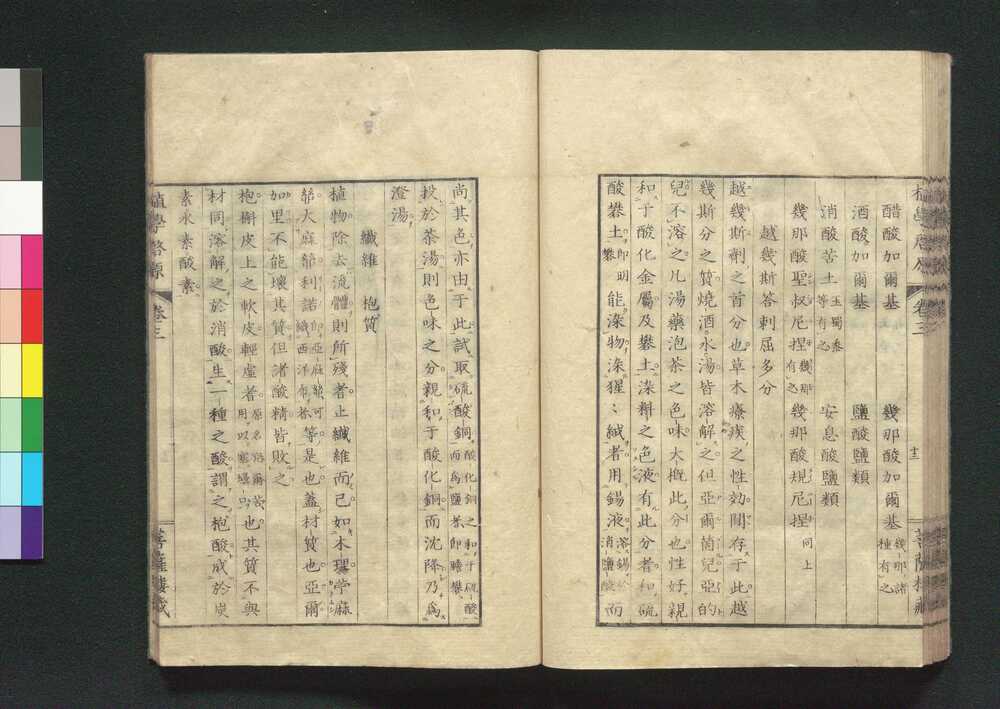 醋酸加爾基 幾那酸加爾基 幾那諸種有之
酒酸加爾基 鹽酸鹽類
消酸苦土 玉蜀黍等有之 安息酸鹽類
幾那酸聖叔尼捏 幾那有之 幾那酸規尼捏 同上
越幾斯答剌屈多分
越幾斯劑之首分也草木療疾之性効關存于此越
幾斯分之質燒酒水湯皆溶解之但亞爾箇兒亞的
兒不溶之凡湯藥泡茶之色味大概此分也性好親
和于酸化金屬及礬土染料之色液有此分者和硫
酸礬土 即明礬 能染物染猩〻緘者用錫液 溶錫於消鹽酸 而
尚其色亦由于此試取硫酸銅 酸化銅之和于硫酸而為鹽者即膽礬
投於茶湯則色味之分親和于酸化銅而沈降乃為
澄湯
纖維 枹質
植物除去流體則所殘者止纖維而已如木理苧麻
大麻利諾 等是也蓋材質也亞爾
如里不能壞其質但諸酸精皆敗之
枹槲皮上之軟皮輕虛者 也其質不與
材同溶解之於消酸生一種之酸謂之枹酸成於炭
素水素酸素
植學啓原 卷三
菩薩樓藏
植學啓原 卷三 十二
菩薩樓藏